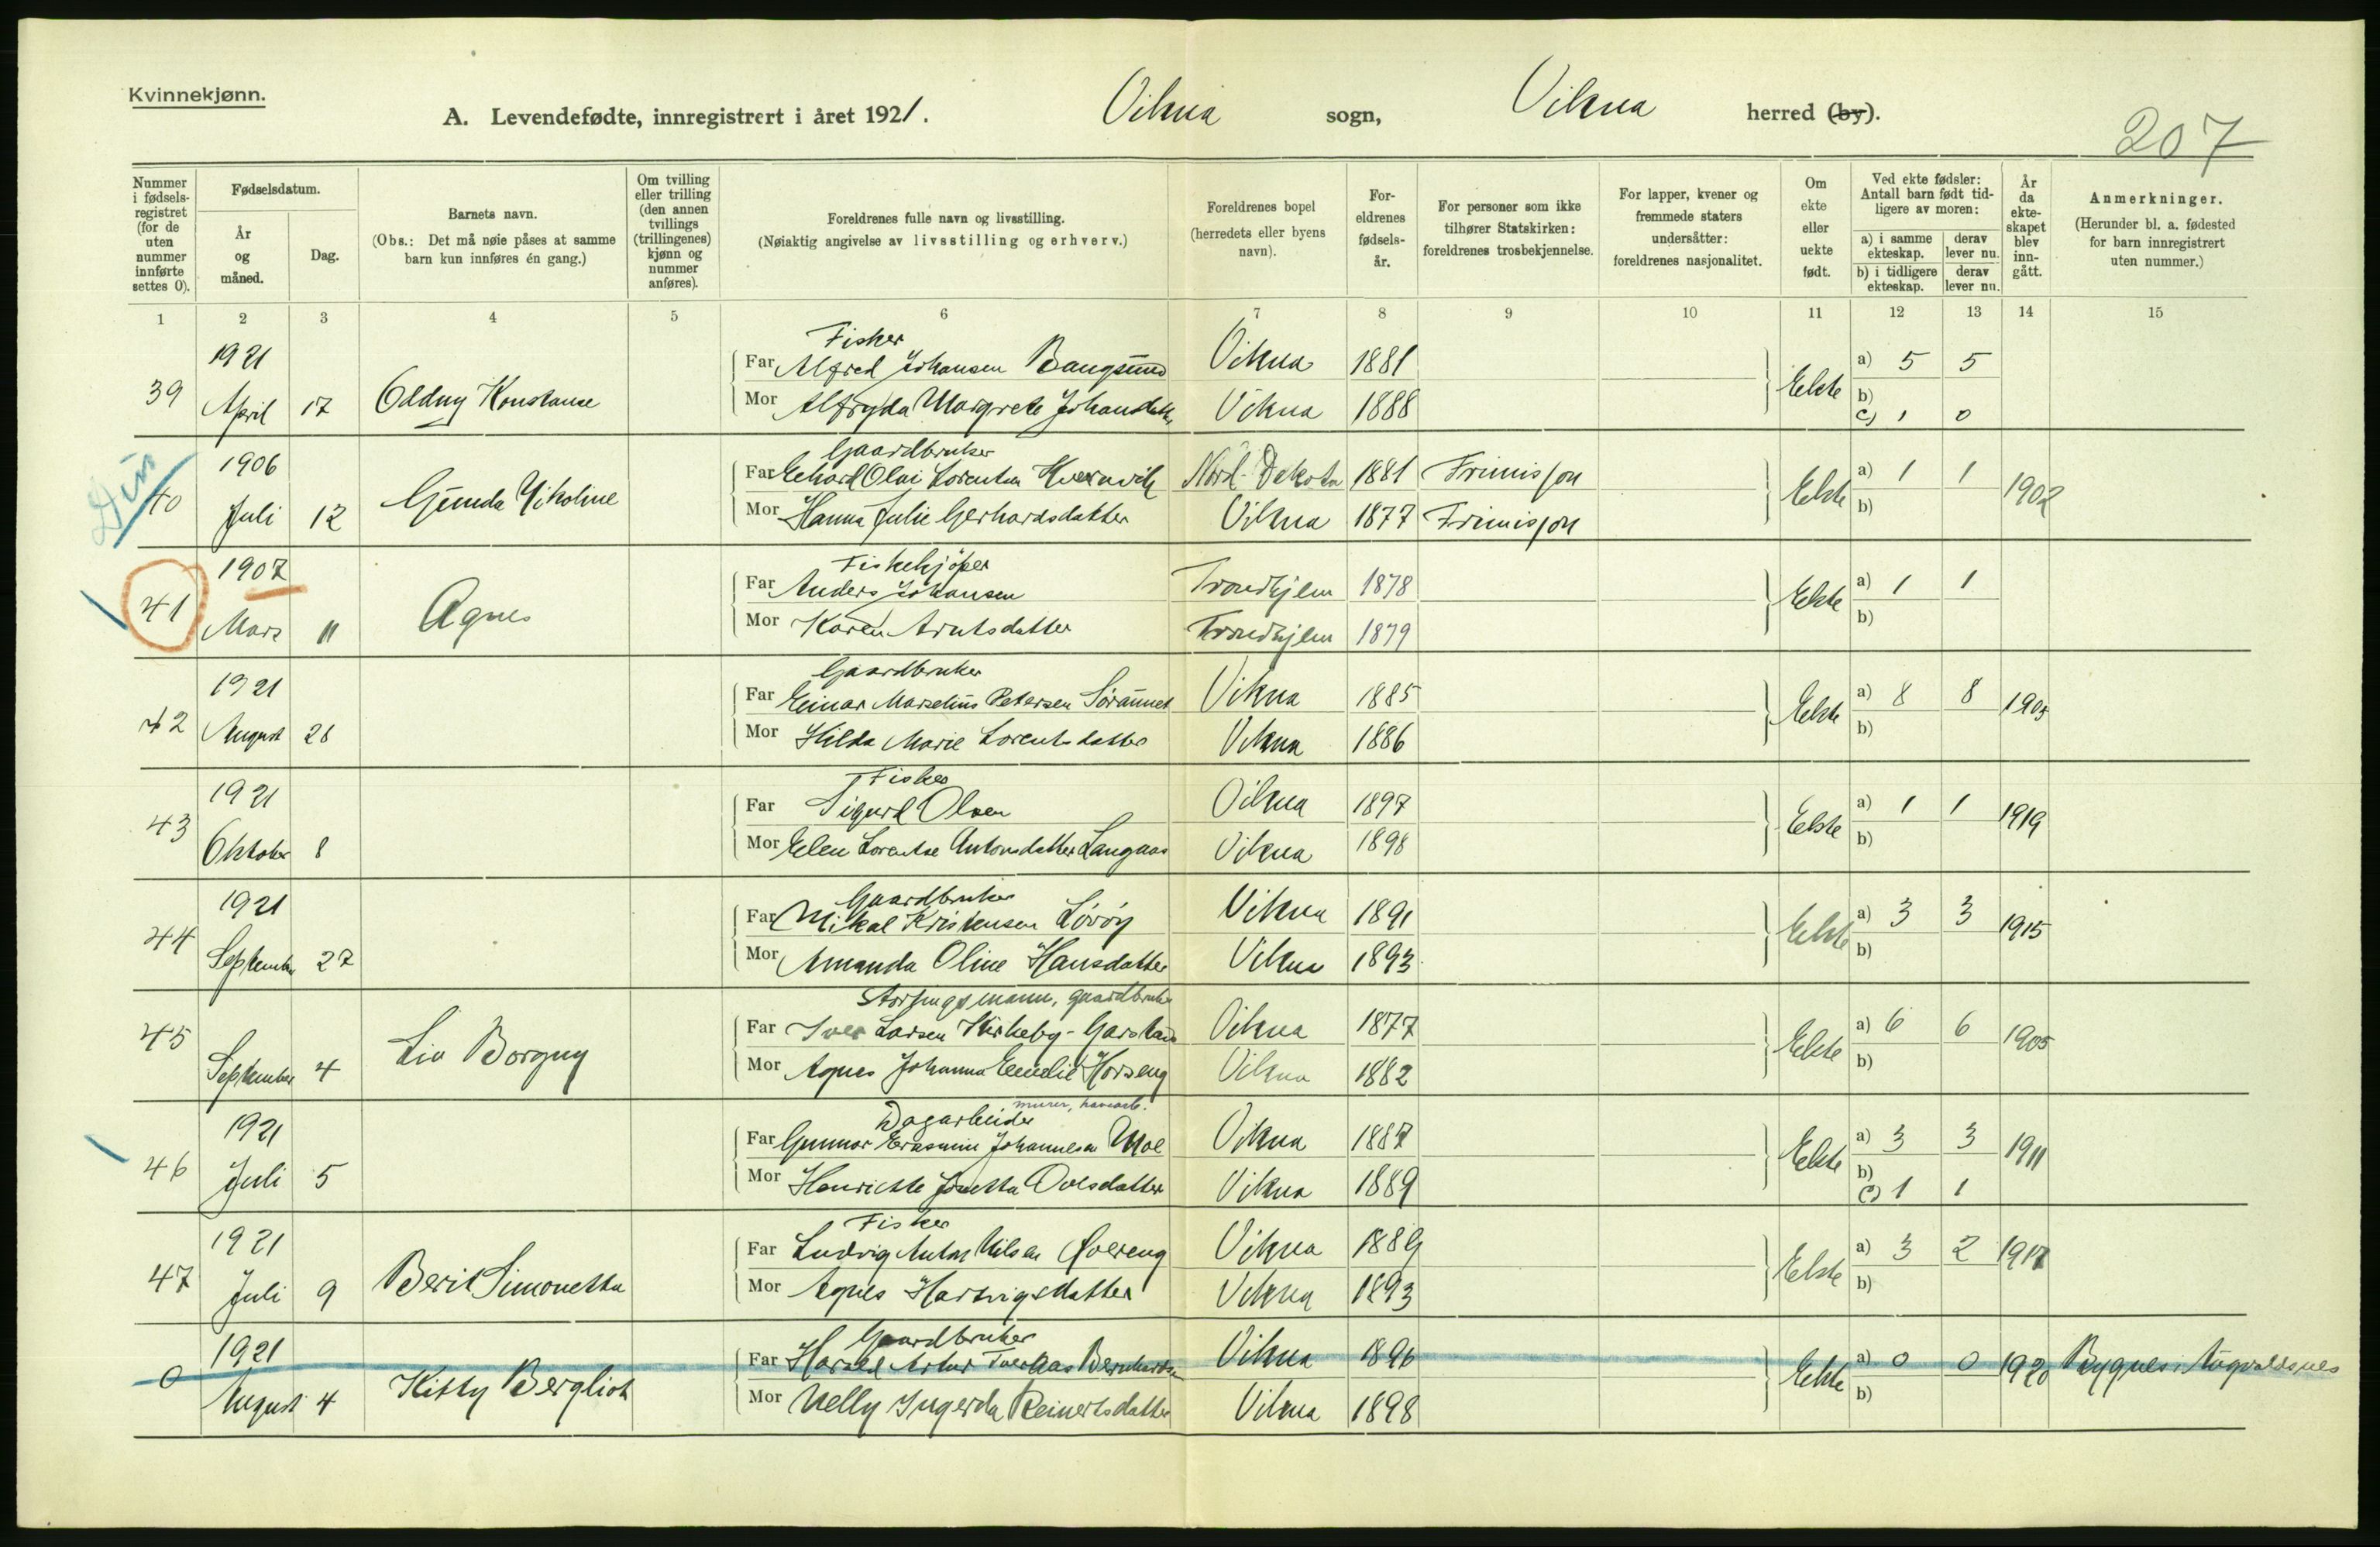 Kvinnekjønn.
A. Levendefødte, innregistrert i året 1921. Vikna sogn, Vikna herred (by).
207
Nummer i fødselsregistret (for de uten nummer innførte settes 0).
Fødselsdatum.
År og måned.
Dag.
Barnets navn.
(Obs.: Det må nøie påses at samme barn kun innføres én gang.)
Om tvilling eller trilling (den annen tvillings (trillingenes) kjønn og nummer anføres).
Foreldrenes fulle navn og livsstilling.
(Nøiaktig angivelse av livsstilling og erhverv.)
Foreldrenes bopel (herredets eller byens navn).
Foreldrenes fødselsår.
For personer som ikke tilhører Statskirken: foreldrenes trosbekjennelse.
For lapper, kvener og fremmede staters undersåtter: foreldrenes nasjonalitet.
Om ekte eller uekte født.
Ved ekte fødsler: Antall barn født tidligere av moren:
a) i samme ekteskap. derav lever nu.
b) i tidligere ekteskap. derav lever nu.
År da ekteskapet blev inngått.
Anmerkninger.
(Herunder bl. a. fødested for barn innregistrert uten nummer.)
1 2 3 4 5 6 7 8 9 10 11 12 13 14 15
Fisker
39 1921 April 17 Oddny Konstanse
Far Alfred Johansen Bangsund Vikna 1881 Ekte a) 5 5
Mor Alfryda Margrete Johansdatter Vikna 1888 b)
c) 1 0
Gaardbruker
40 1906 Juli 12 Gunda Nikoline
Far Olai Lorentsen Nord-Dakota 1881 Frimisjon Ekte a) 1 1 1902
Mor Hanna Julie Gerhardsdatter Vikna 1877 Frimisjon b)
Fiskekjöper
41 1907 Mars 11 Agnes
Far Anders Johansen Trondhjem 1878 Ekte a) 1 1
Mor Karen Arntsdatter Trondhjem 1879 b)
Gaardbruker
42 1921 August 28
Far Einar Marselius Petersen Vikna 1885 Ekte a) 8 8 1905
Mor Hilda Marie Lorentsdatter Vikna 1886 b)
Fisker
43 1921 Oktober 8
Far Sigurd Olsen Vikna 1897 Ekte a) 1 1 1919
Mor Elen Lorentse Antonsdatter Langaas Vikna 1898 b)
Gaardbruker
44 1921 September 27
Far Mikal Kristensen Löröy Vikna 1891 Ekte a) 3 3 1915
Mor Amanda Oline Hansdatter Vikna 1893 b)
Stortingsmann, gaardbruker
45 September 4 Liv Borgny
Far Iver Larsen Kirkeby-Garstad Vikna 1877 Ekte a) 6 6 1905
Mor Agnes Johanna Emelie Horseng Vikna 1882 b)
Dagarbeider murer, havnearb.
46 1921 Juli 5
Far Gunnar Erasmus Johannesen Moe Vikna 1887 Ekte a) 3 3 1911
Mor Henriette Josetta Ovesdatter Vikna 1889 b)
c) 1 1
Fisker
47 1921 Juli 9 Berit Simonetta
Far Ludvig Anton Nilsen Vikna 1889 Ekte a) 3 2 1917
Mor Agnes Hartvigsdatter Vikna 1893 b)
Gaardbruker
0 1921 August 4 Kitty Bergliot
Far Harald Artur Tveraas Berntsen Vikna 1896 Ekte a) 0 0 1920 Bygnes i
Mor Nelly Ingerda Reinertsdatter Vikna 1898 b)